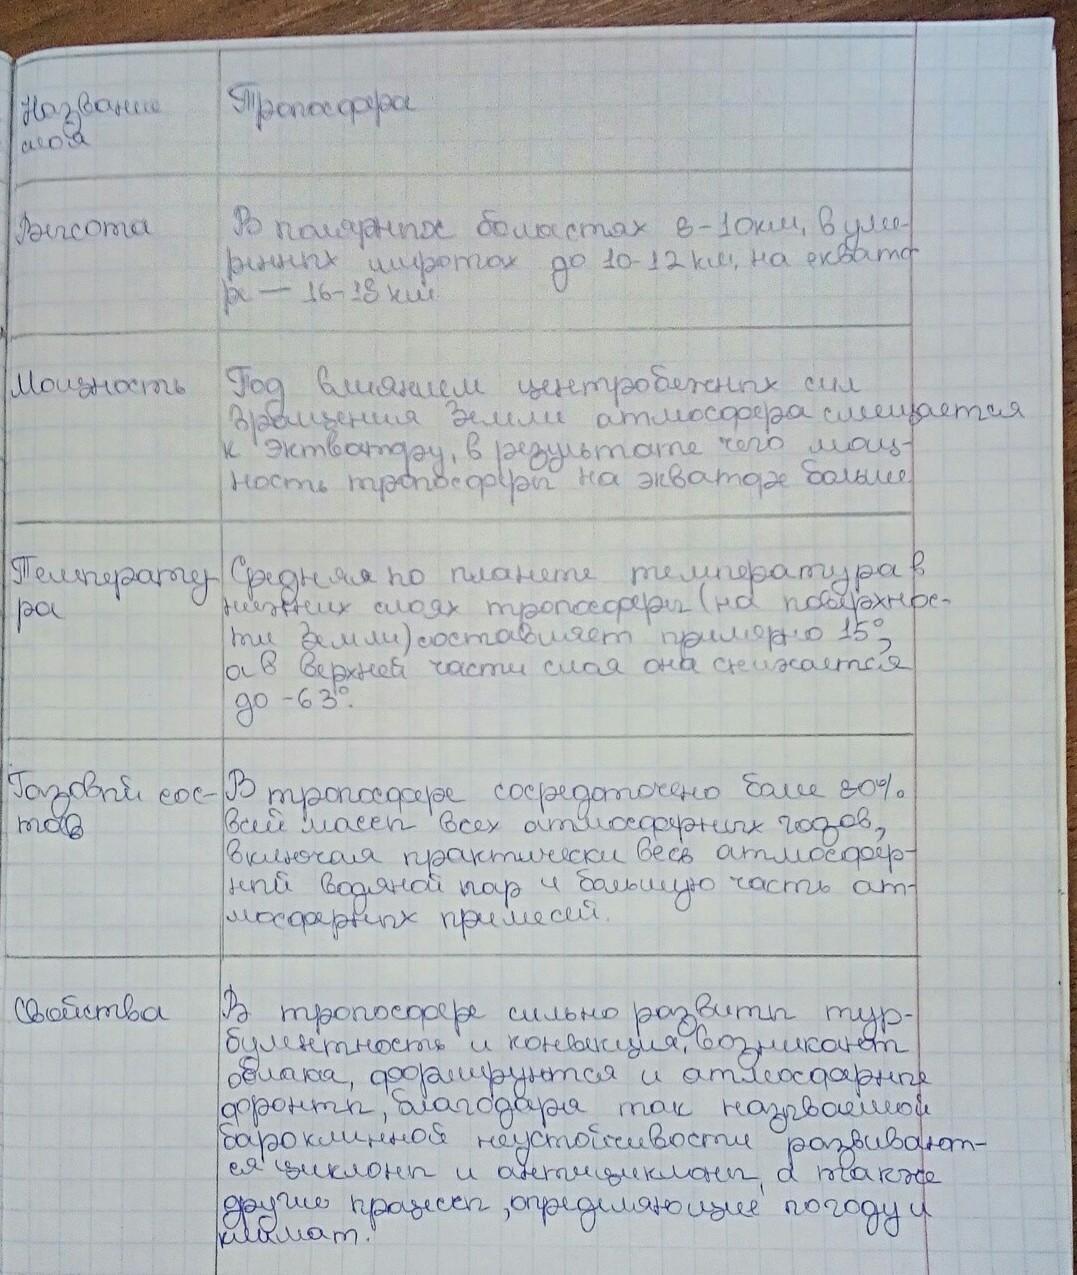 Название Тропосфера
слоя
Высота В полярных боластях 8-10км, в уме-
ренных широтах до 10-12 км, на еквато
ре — 16-18 км
Мощность Под влиянием центробежных сил
Вращения Земли атмосфера смещается
к экватору, в результате чего мощ-
ность тропосферы на экваторе больше
Температу Средняя по планете температура в
ра нижних слоях тропосферы (на поверхнос-
ти Земли) составляет примерно 15°,
а в верхней части слоя она снижается
до -63°.
Газовый сос- В тропосфере сосредоточено более 80%
тав всей массы всех атмосферных газов,
включая практически весь атмосфер-
ный водяной пар и большую часть ат-
мосферных примесей.
Свойства В тропосфере сильно развиты тур-
булентность и конвекция, возникают
облака, формируются и атмосферные
фронты, благодаря так называемой
бароклинной неустойчивости развивают-
ся циклоны и антициклоны, а также
другие процессы, определяющие погоду и
климат.